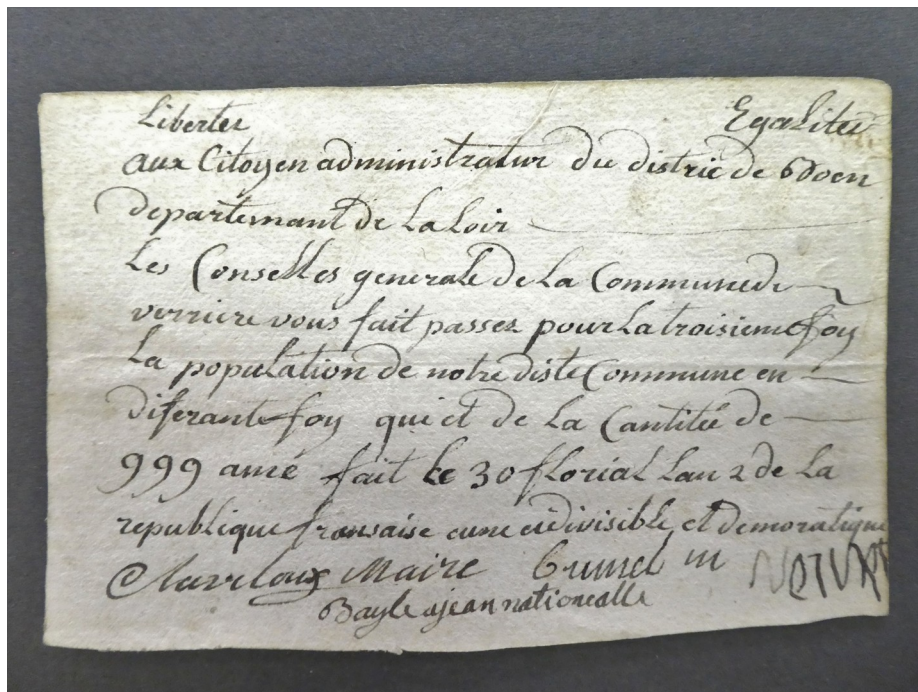 Libertes Egalites
aux Citoyen administratur du distric de Boen
departemant de La Loir
Les Conselles generale de La Commune de
verriere vous fait passez pour La troisieme foy
La population de notre diste Commune en
diferante foy qui et de La Cantitée de
999 ame fait le 30 florial Lan 2 de La
republique fransaise eune eidivisible et demoratique
Maire
Bayle ajean nationealle